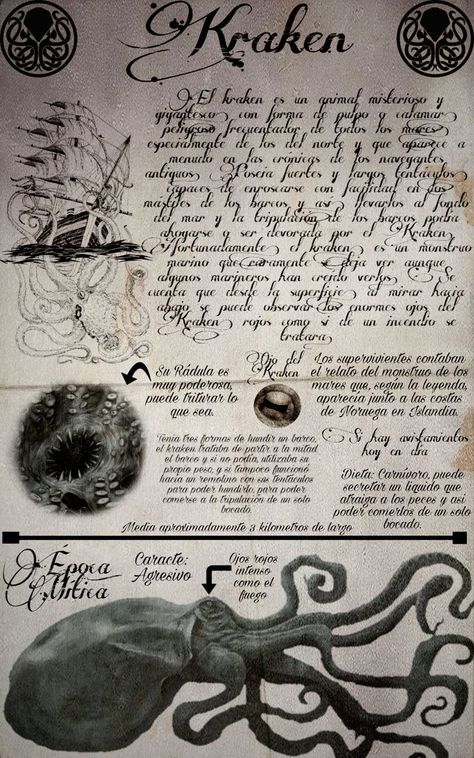 Kraken
El kraken es un animal misterioso y
gigantesco con forma de pulpo o calamar
peligroso frequentador de todos los mares
especialmente de los del norte y que aparece a
menudo en las crónicas de los navegantes
antiguos. Poseía fuertes y largos tentáculos
capaces de enroscarse con facilidad en los
mástiles de los barcos y así llevarlos al fondo
del mar y la tripulación de los barcos podía
ahogarse o ser devorada por el Kraken.
Afortunadamente el kraken es un monstruo
marino que raramente deja ver aunque
algunos marineros han creído verlos. Se
cuenta que desde la superficie al mirar hacia
abajo se puede observar los enormes ojos del
Kraken rojos como si de un incendio se
tratara
Su Rádula es
muy poderosa,
puede triturar lo
que sea.
Ojo del
Kraken
Los supervivientes contaban
el relato del monstruo de los
mares que, según la leyenda,
aparecía junto a las costas
de Noruega en Islandia.
Tenía tres formas de hundir un barco,
el kraken trataba de partir a la mitad
el barco y si no podía, utilizaba su
propio peso, y si tampoco funcionó
hacía un remolino con sus tentáculos
para poder hundirlo, para poder
comerse a la tripulación de un solo
bocado.
Si hay avistamientos
hoy en día
Dieta: Carnívoro, puede
secretar un líquido que
atraiga a los peces y así
poder comerlos de un solo
bocado.
Media aproximadamente 3 kilometros de largo
Época
Mítica
Caracte:
Agresivo
Ojos rojos
intenso
como el
fuego